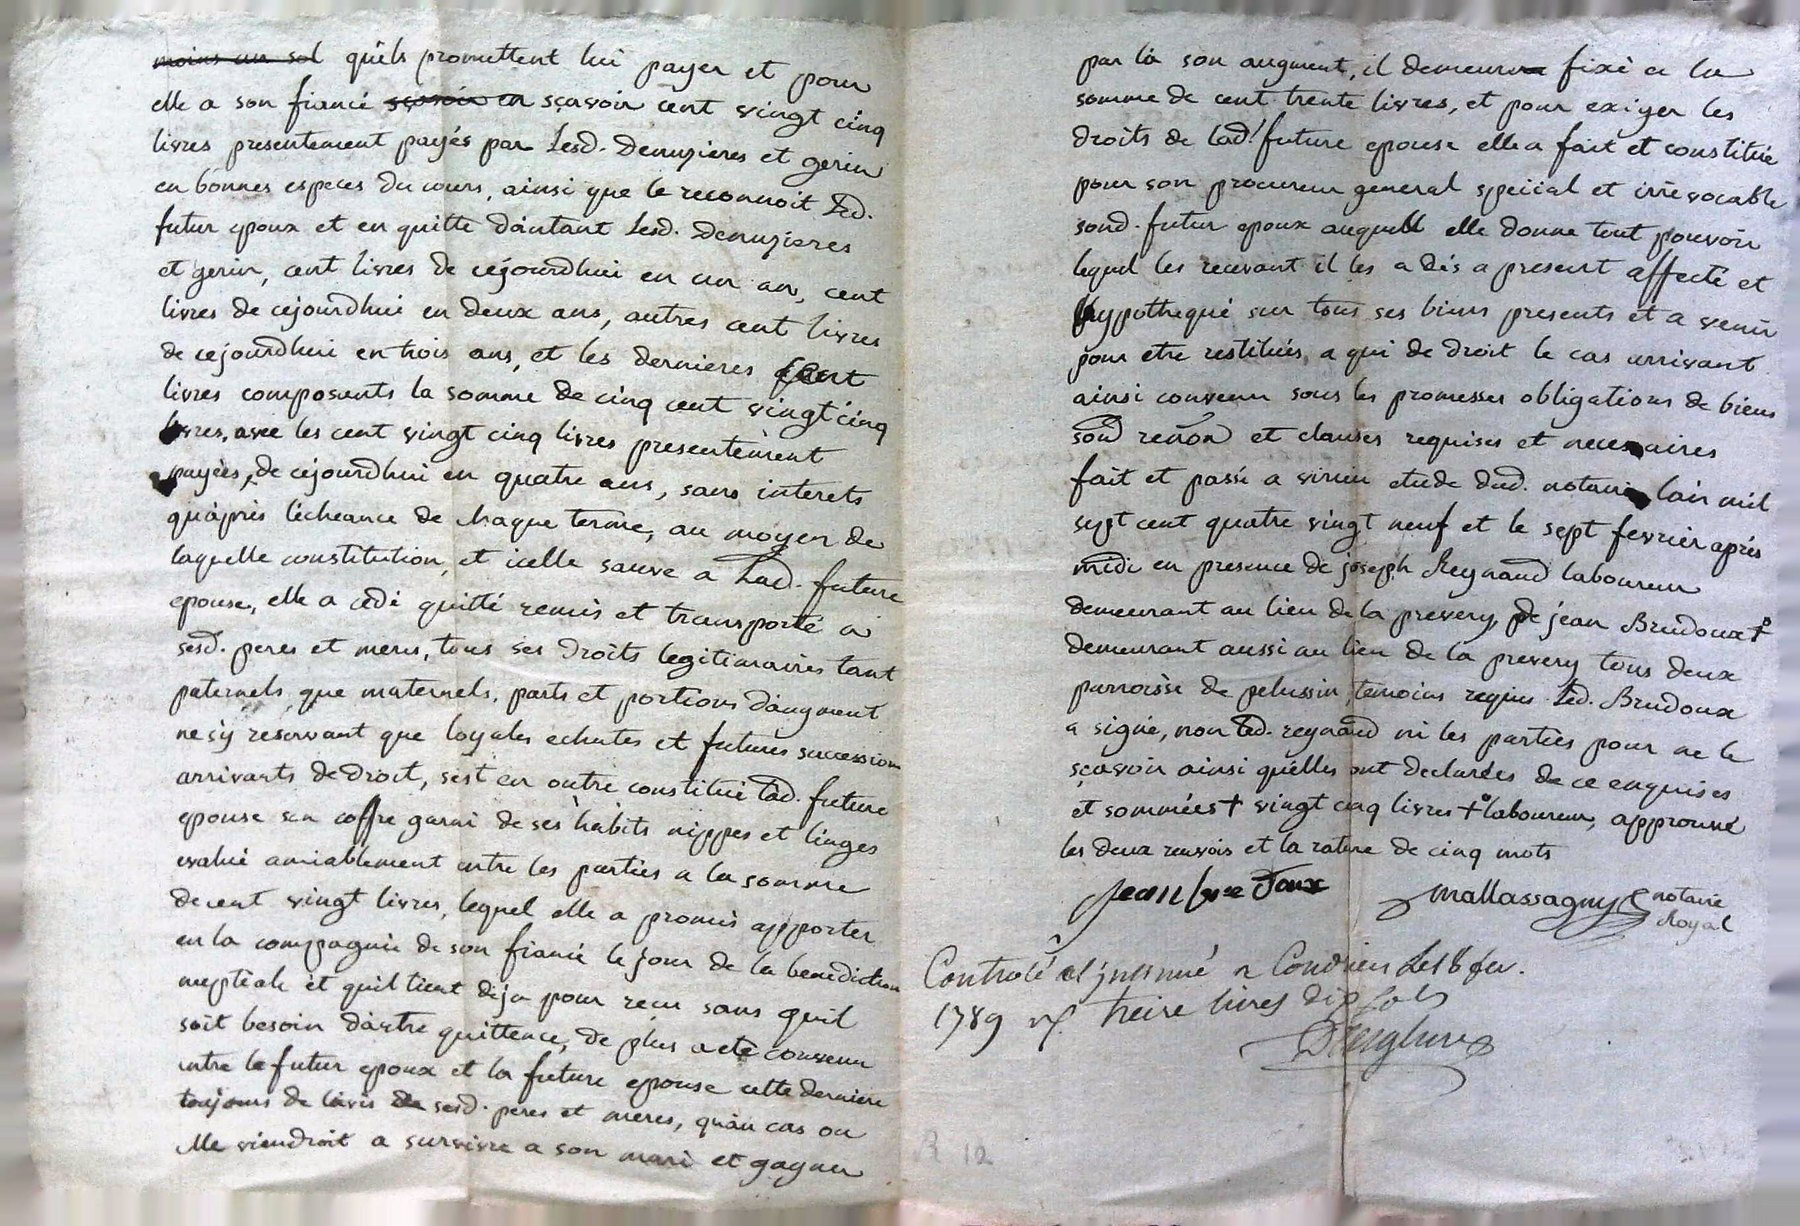 moins un sol qu'ils promettent lui payer et pour
elle a son fiancé sçavoir en sçavoir cent vingt cinq
livres presentement payés par Lesd. Denuzieres et gerin
en bonnes especes du cours, ainsi que le reconnoit Led.
futur epoux et en quitte d'autant Lesd. Denuzieres
et gerin, cent livres de cejourdhui en un an, cent
livres de cejourdhui en deux ans, autres cent livres
de cejourdhui en trois ans, et les dernieres cent
livres composants la somme de cinq cent vingt cinq
livres, avec les cent vingt cinq livres presentement
payées, de cejourdhui en quatre ans, sans interets
qu'après l'écheance de chaque terme, au moyen de
laquelle constitution, et icelle sauve a Lad. future
epouse, elle a cédé quitté remis et transporté a
sesd. peres et meres, tous ses droits legitimaires tant
paternels que maternels, parts et portions d'augment
ne s'y reservant que loyales echutes et futures successions
arrivants de droit, s'est en outre constitué lad. future
epouse son coffre garni de ses habits nippes et linges
evalué amiablement entre les parties a la somme
de cent vingt livres, lequel elle a promis apporter
en la compagnie de son fiancé le jour de la benediction
nuptiale et qu'il tient deja pour reçu sans qu'il
soit besoin d'autre quittence, de plus a eté convenu
entre le futur epoux et la future epouse cette derniere
toujours de l'avis de sesd. peres et meres, qu'au cas ou
elle viendroit a survivre a son mari et gagner
par là son augment, il demeurera fixé a la
somme de cent trente livres, et pour exiger les
droits de lad. future epouse elle a fait et constitué
pour son procureur general special et irrévocable
sond. futur epoux auquell elle donne tout pouvoir
lequel les recevant il les a dès a present affecté et
hypothequé sur tous ses biens presents et a venir
pour etre restitués a qui de droit le cas arrivant
ainsi convenu sous les promesses obligations de biens
soud renon et clauses requises et necessaires
fait et passé a virieu etude dud. notaire l'an mil
sept cent quatre vingt neuf et le sept fevrier après
midi en presence de joseph Reynaud laboureur
demeurant au lieu de la prevery de jean Brudoux +
demeurant aussi au lieu de la prevery tous deux
parroisse de pelussin, temoins requis. Led. Brudoux
a signé, non led. reynaud ni les parties pour ne le
sçavoir ainsi qu'elles ont declarées de ce enquises
et sommées + vingt cinq livres + laboureur, approuvé
les deux renvois et la rature de cinq mots
Jean Doux mallassagny notaire
Royal
Controlé et insinué a Condrieu Le 8 fev.
1789 treize livres dix sols